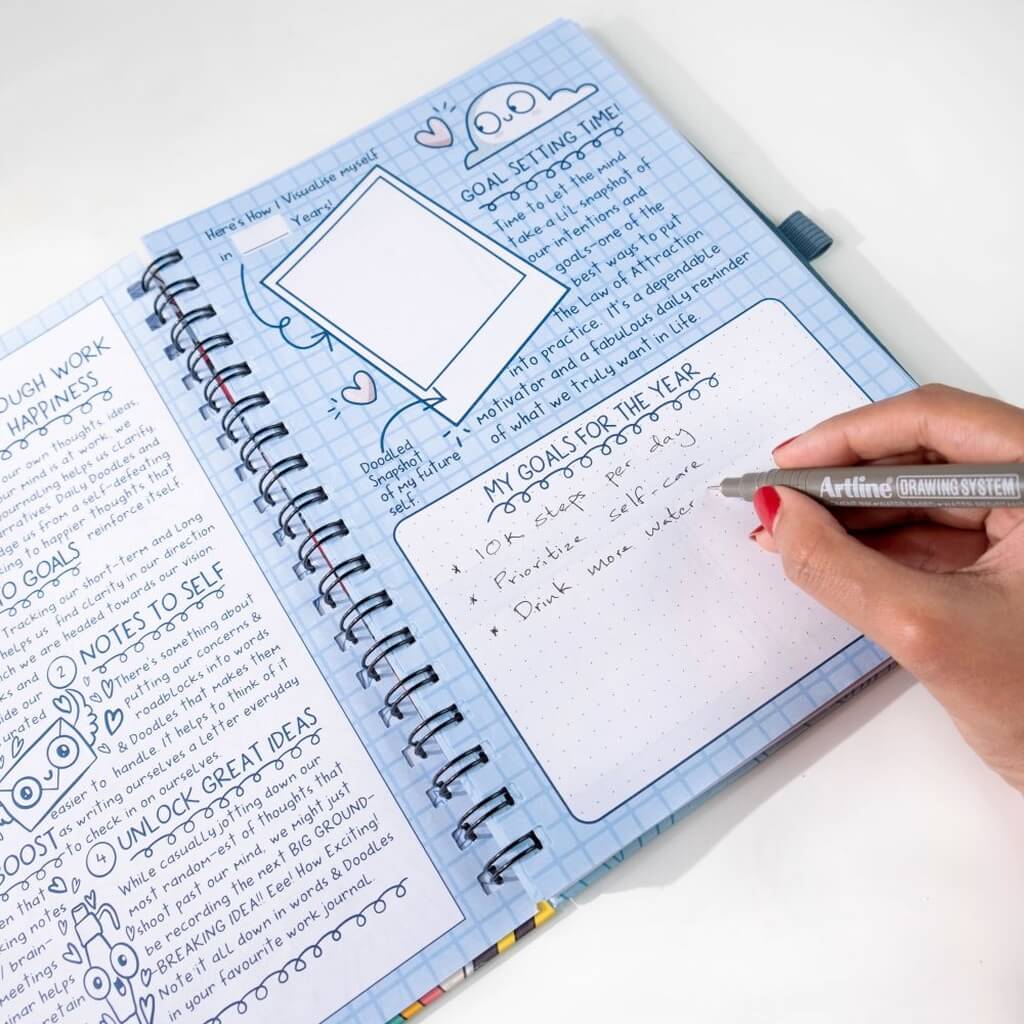 OUGH WORK
HAPPINESS
our own thoughts, ideas,
our mind is at work, we
journaling helps us clarify
narratives. Daily Doodles and
us from a self-defeating
to happier thoughts that
reinforce itself.
TO GOALS
Tracking our short-term and long
helps us find clarity in our direction
we are headed towards our vision
and
2 NOTES TO SELF
There's something about
putting our concerns &
roadblocks into words
& Doodles that makes them
easier to handle. It helps to think of it
as writing ourselves a Letter everyday
to check in on ourselves.
BOOST
4 UNLOCK GREAT IDEAS
While casually jotting down our
most random-est of thoughts that
shoot past our mind, we might just
be recording the next BIG GROUND-
BREAKING IDEA!! Eee! How Exciting!
Note it all down in words & Doodles
in your favourite work journal.
that
notes
brain-
meetings
helps
retain
Here's How I Visualise myself
in Years!
Doodled
Snapshot
of my future
self.
GOAL SETTING TIME!
Time to Let the mind
take a Li'L snapshot of
our intentions and
goals-one of the
best ways to put
the Law of Attraction
into practice. It's a dependable
Motivator and a fabulous daily reminder
of what we truly want in Life.
MY GOALS FOR THE YEAR
* 10K steps per day
* Prioritize self-care
* Drink more water
Artline DRAWING SYSTEM